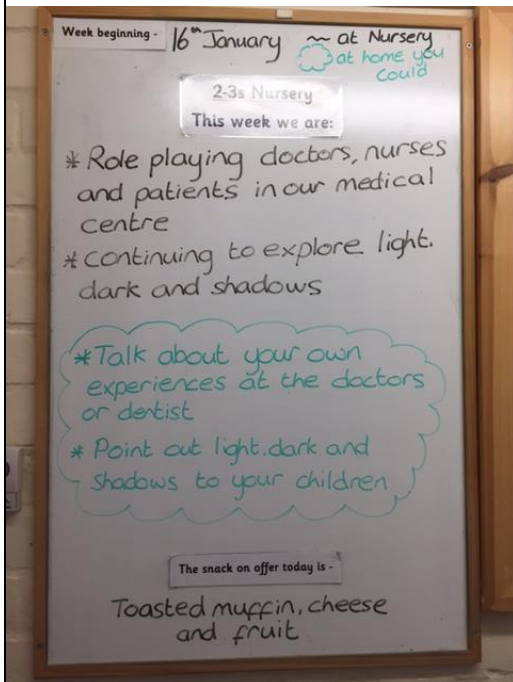 Week beginning - 16th January ~ at Nursery
at home you
could
2-3s Nursery
This week we are:
* Role playing doctors, nurses
and patients in our medical
centre
* continuing to explore light.
dark and shadows
* Talk about your own
experiences at the doctors
or dentist
* Point out light.dark and
shadows to your children
The snack on offer today is -
Toasted muffin, cheese
and fruit